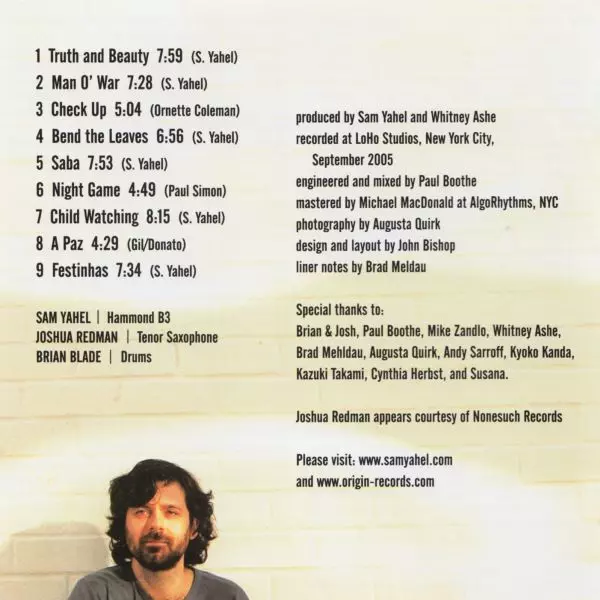 1 Truth and Beauty 7:59 (S. Yahel)
2 Man O' War 7:28 (S. Yahel)
3 Check Up 5:04 (Ornette Coleman)
4 Bend the Leaves 6:56 (S. Yahel)
5 Saba 7:53 (S. Yahel)
6 Night Game 4:49 (Paul Simon)
7 Child Watching 8:15 (S. Yahel)
8 A Paz 4:29 (Gil/Donato)
9 Festinhas 7:34 (S. Yahel)
SAM YAHEL | Hammond B3
JOSHUA REDMAN | Tenor Saxophone
BRIAN BLADE | Drums
produced by Sam Yahel and Whitney Ashe
recorded at LoHo Studios, New York City,
September 2005
engineered and mixed by Paul Boothe
mastered by Michael MacDonald at AlgoRhythms, NYC
photography by Augusta Quirk
design and layout by John Bishop
liner notes by Brad Meldau
Special thanks to:
Brian & Josh, Paul Boothe, Mike Zandlo, Whitney Ashe,
Brad Mehldau, Augusta Quirk, Andy Sarroff, Kyoko Kanda,
Kazuki Takami, Cynthia Herbst, and Susana.
Joshua Redman appears courtesy of Nonesuch Records
Please visit: www.samyahel.com
and www.origin-records.com